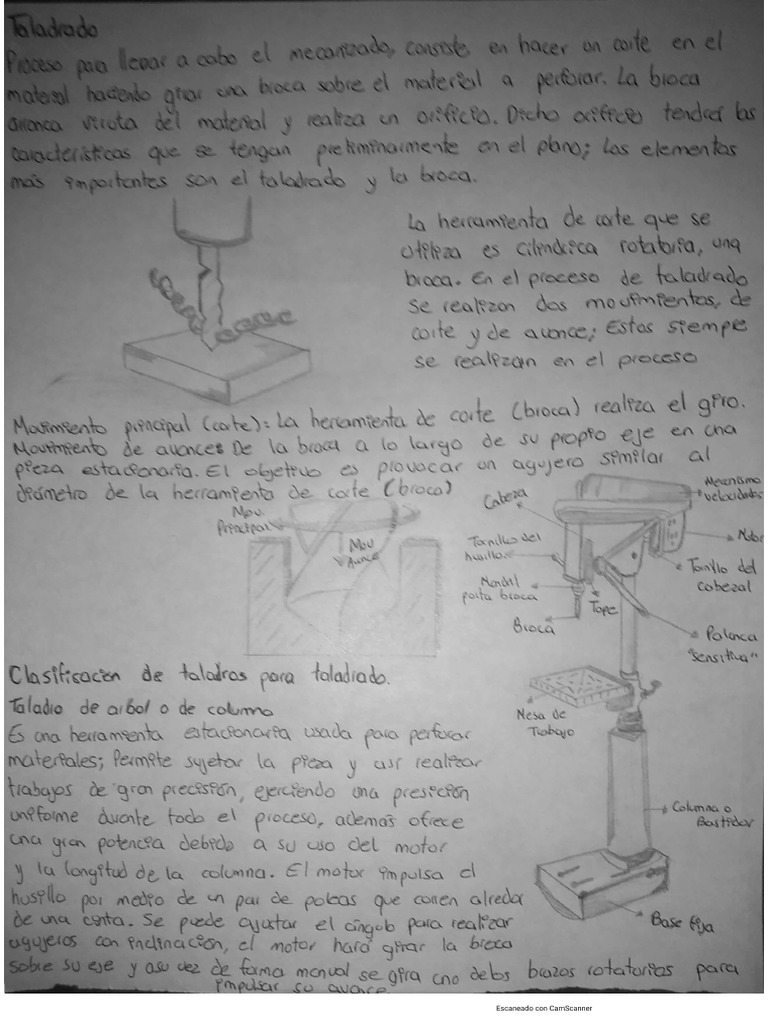 Taladrado
Proceso para llevar a cabo el mecanizado, consiste en hacer un corte en el
material haciendo girar una broca sobre el material a perforar. La broca
arranca viruta del material y realiza un orificio. Dicho orificio tendrá las
características que se tengan preliminarmente en el plano; Los elementos
más importantes son el taladrado y la broca.
La herramienta de corte que se
utiliza es cilindrica rotatoria, una
broca. En el proceso de taladrado
se realizan dos movimientos, de
corte y de avance; Estos siempre
se realizan en el proceso
Movimiento principal (corte): La herramienta de corte (broca) realiza el giro.
Movimiento de avance: De la broca a lo largo de su propio eje en una
pieza estacionaria. El objetivo es provocar un agujero similar al
diámetro de la herramienta de corte (broca)
Mov.
Principal
Mov
Avance
Cabeza
Mecanismo
velocidades
Tornillo del
husillo
Motor
Tornillo del
cabezal
Mandril
porta broca
Tope
Broca
Palanca
"sensitiva"
Mesa de
Trabajo
Columna o
Bastidor
Base fija
Clasificación de taladros para taladrado.
Taladro de arbol o de columna
Es una herramienta estacionaria usada para perforar
materiales; Permite sujetar la pieza y así realizar
trabajos de gran precisión, ejerciendo una presición
uniforme durante todo el proceso, además ofrece
una gran potencia debido a su uso del motor
y la longitud de la columna. El motor impulsa el
husillo por medio de un par de poleas que corren alreda
de una cinta. Se puede ajustar el ángulo para realizar
agujeros con inclinación, el motor hará girar la broca
sobre su eje y asu vez de forma manual se gira uno delos brazos rotatorios para
impulsar su avance
Escaneado con CamScanner